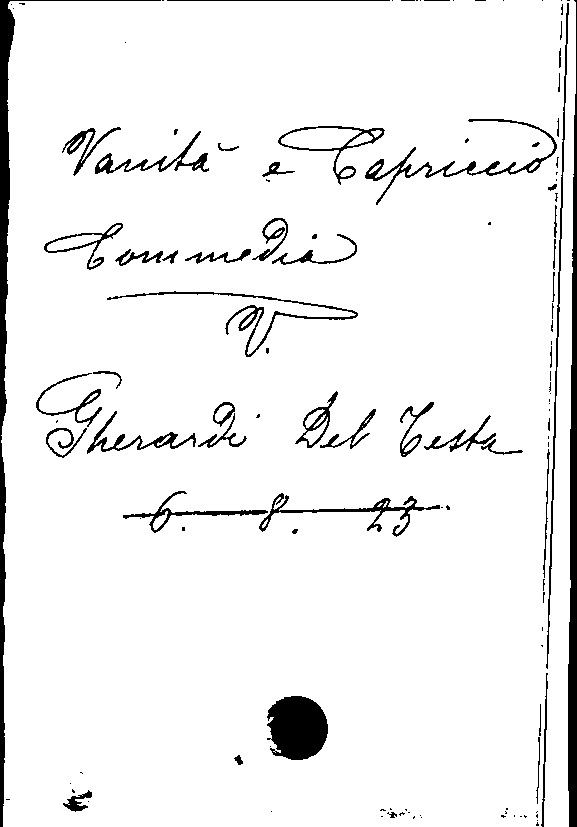 Vanità e Capriccio,
Commedia
V.
Gherardi Del Testa
6. 8. 23